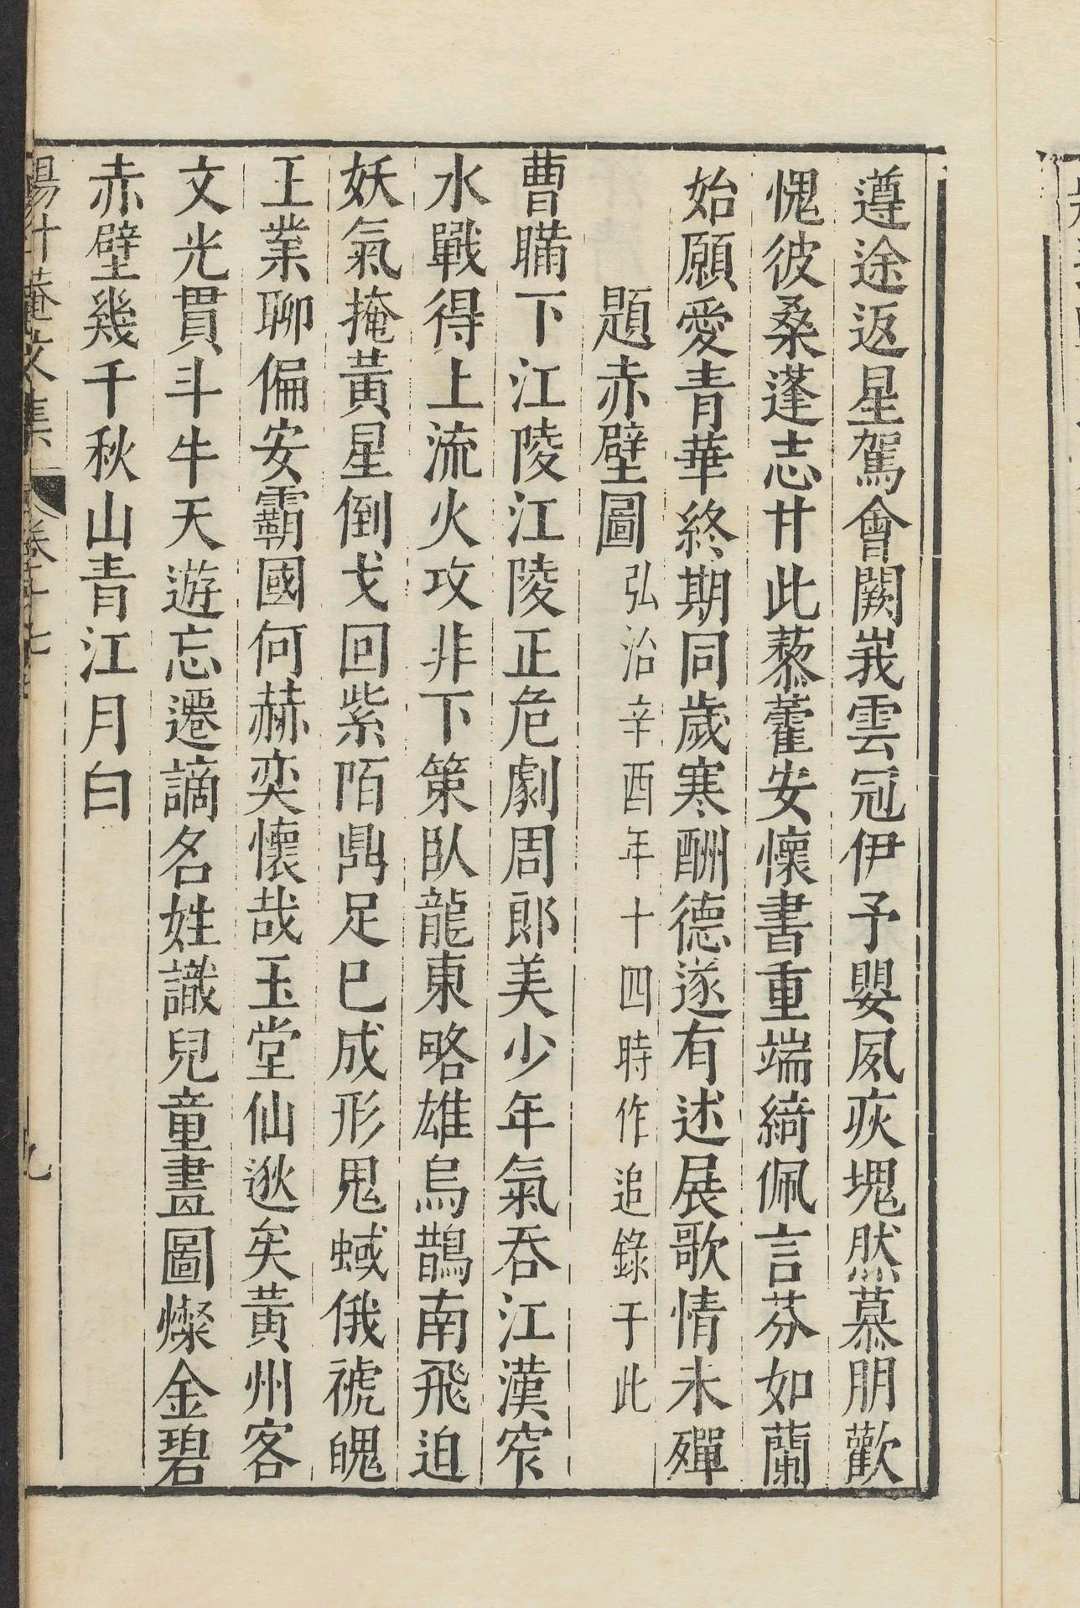 遵途返星駕會闕峩雲冠伊予嬰夙疢塊然慕朋歡
愧彼桑蓬志甘此藜藿安懷書重端綺佩言芬如蘭
始願愛青華終期同歲寒酬德遂有述展歌情未殫
題赤壁圖弘治辛酉年十四時作追錄于此
曹瞞下江陵江陵正危劇周郎美少年氣吞江漢窄
水戰得上流火攻非下策臥龍東略雄烏鵲南飛迫
妖氣掩黃星倒戈回紫陌鼎足已成形鬼蜮俄禠魄
王業聊偏安霸國何赫奕懷哉玉堂仙逖矣黃州客
文光貫斗牛天遊忘遷謫名姓識兒童畫圖燦金碧
赤壁幾千秋山青江月白
楊升菴文集 卷二十七 九